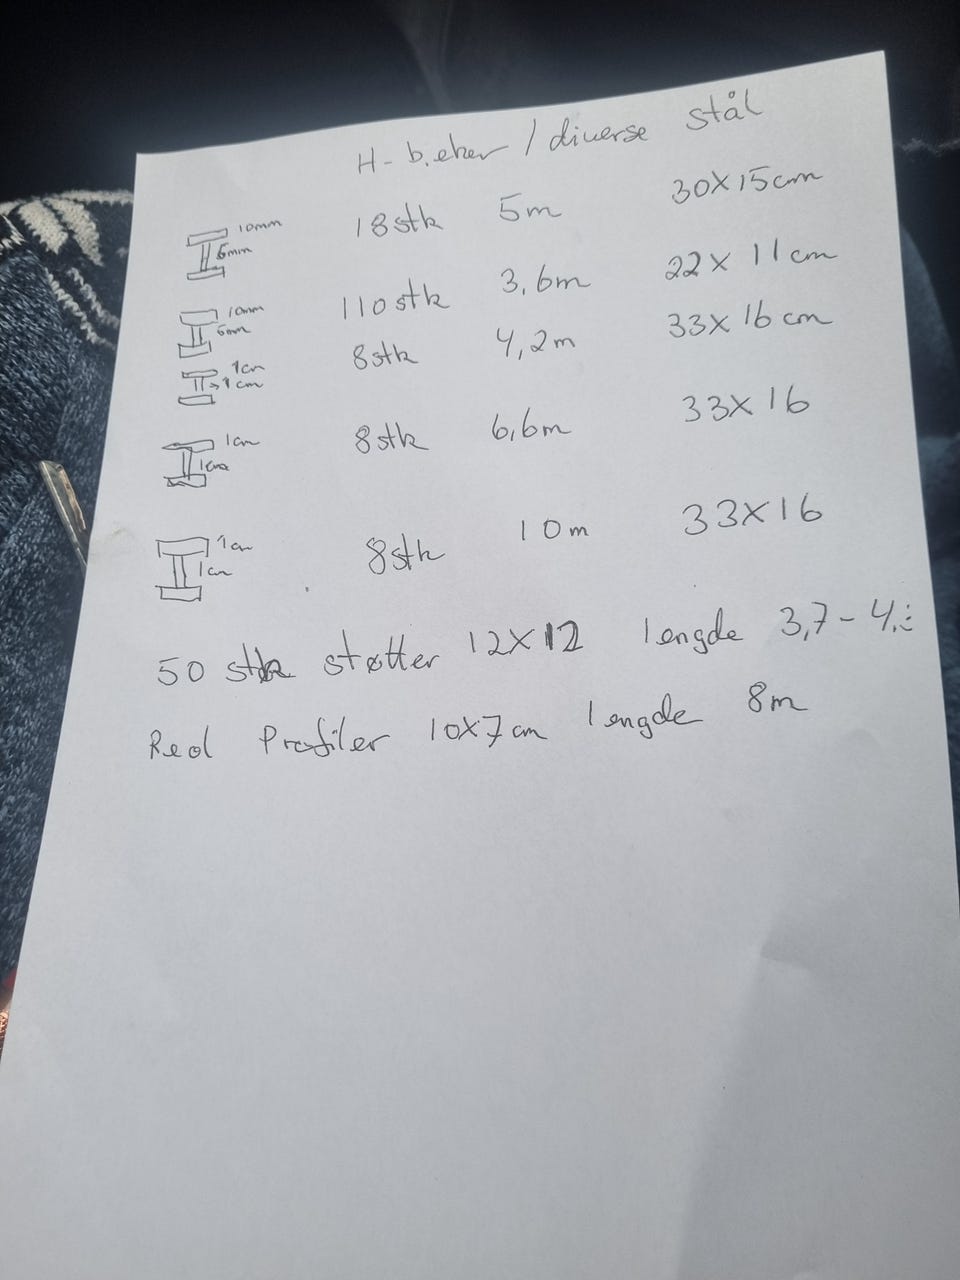 H-bjelker / diverse stål
10mm 6mm 18stk 5m 30X15cm
10mm 6mm 110stk 3,6m 22X 11cm
1cm 1cm 8stk 4,2m 33X 16cm
1cm 1cm 8stk 6,6m 33X16
1cm 1cm 8stk 10m 33X16
50 stk støtter 12X12 lengde 3,7-
Profiler 10X7cm lengde 8m